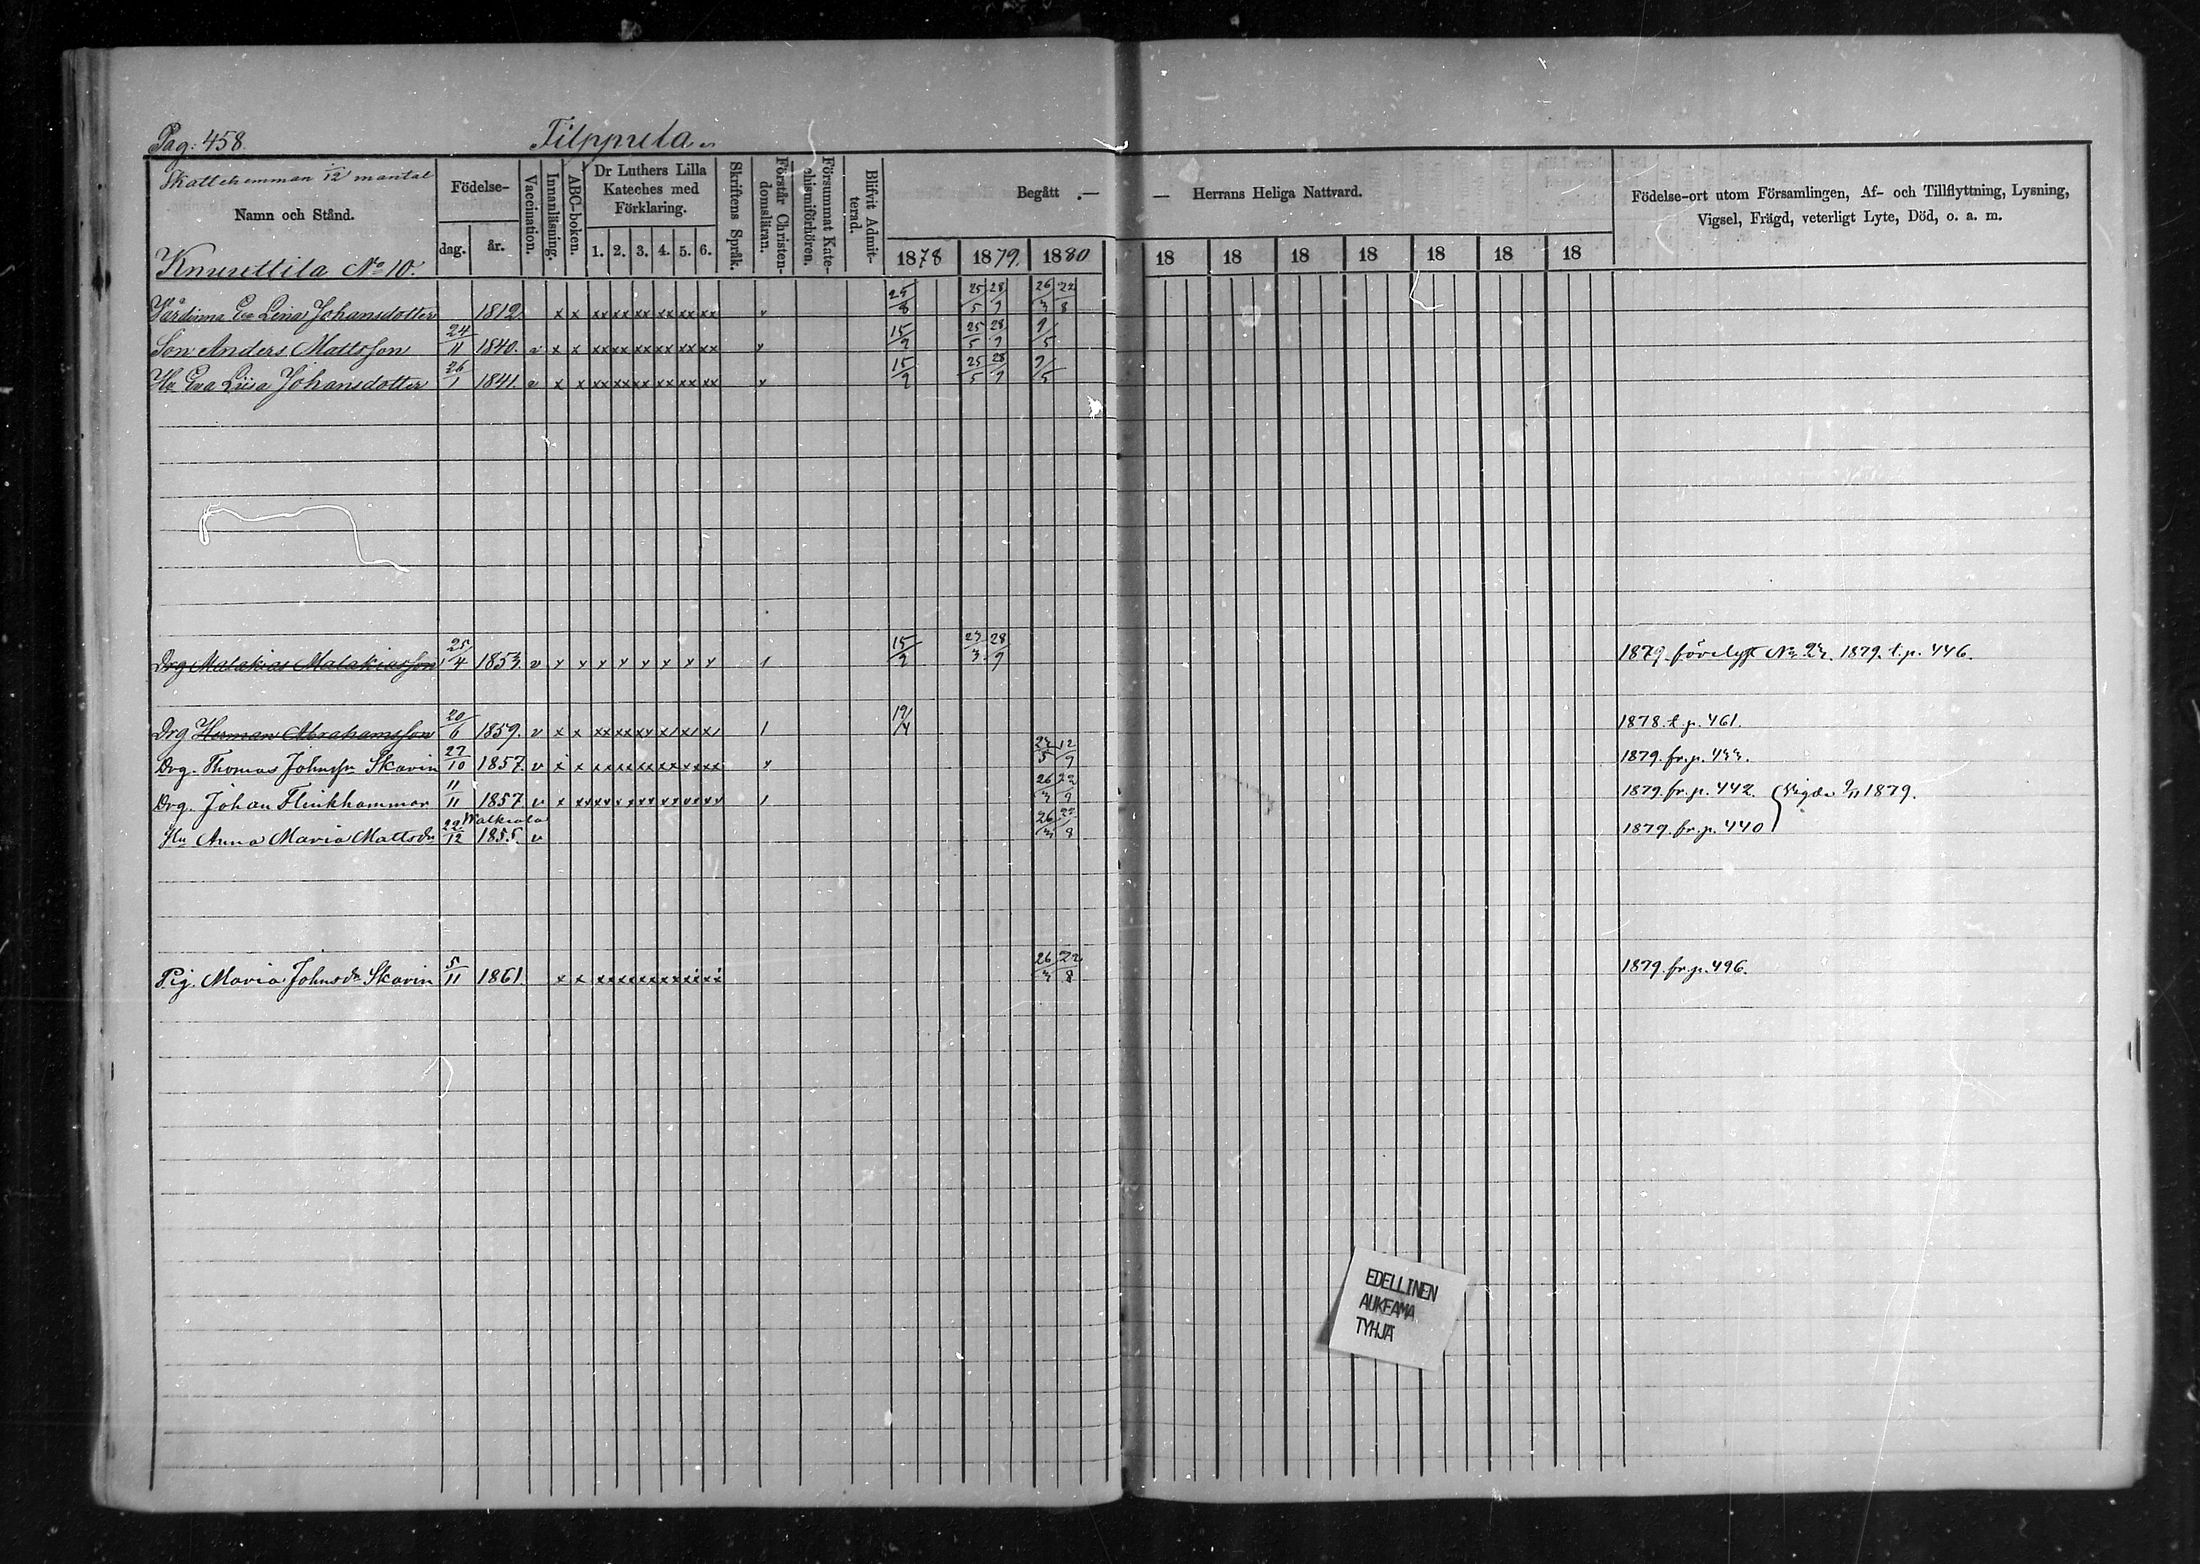 Pag: 458. Filppula.
Skattehemman 1/12 mantal
Namn och Stånd.
Knuuttila No 10.
Födelse-
dag. år.
Vaccination.
Innanläsning.
ABC-boken.
Dr Luthers Lilla
Kateches med
Förklaring.
1. 2. 3. 4. 5. 6.
Skriftens Språk.
Förstår Christen-
domsläran.
Försummat Kate-
chismiförhören.
Blifvit Admit-
terad.
Begått — — Herrans Heliga Nattvard.
1878 1879. 1880 18 18 18 18 18 18 18
Födelse-ort utom Församlingen, Af- och Tillflyttning, Lysning,
Vigsel, Frägd, veterligt Lyte, Död, o. a. m.
Värdinna Eva Lena Johansdotter 1812. x x xx xx xx xx xx xx 25/8 25/5 28/9 26/3 22/8
Son Anders Mattsson 24/11 1840. v x x xx xx xx xx xx xx v 15/9 25/5 28/9 9/5
Hu Eva Liisa Johansdotter 26/1 1841. v x x xx xx xx xx xx xx v 15/9 25/5 28/9 9/5
Drg Malakias Malakiasson 25/4 1853 v x x x x x x x x 15/9 23/3 28/9 1879. t.p. 446.
Drg Herman Abrahamsson 20/6 1859. v x x 1878. t.p. 461.
Drg. Thomas Johnssn Skarin 27/10 1857. v x x 23/5 12/9 1879. fr.p. 433.
Drg. Johan Flinkhammar 11/11 1857 v x 1879. fr.p. 442. Vigde 9/11 1879.
Hu Anna Maria Mattsdr 22/12 1855. v 1879. fr.p. 440
Pig. Maria Johnsdr Skarin 5/11 1861. x x 26/3 22/8 1879. fr.p. 496.
EDELLINEN
AUKEAMA
TYHJÄ